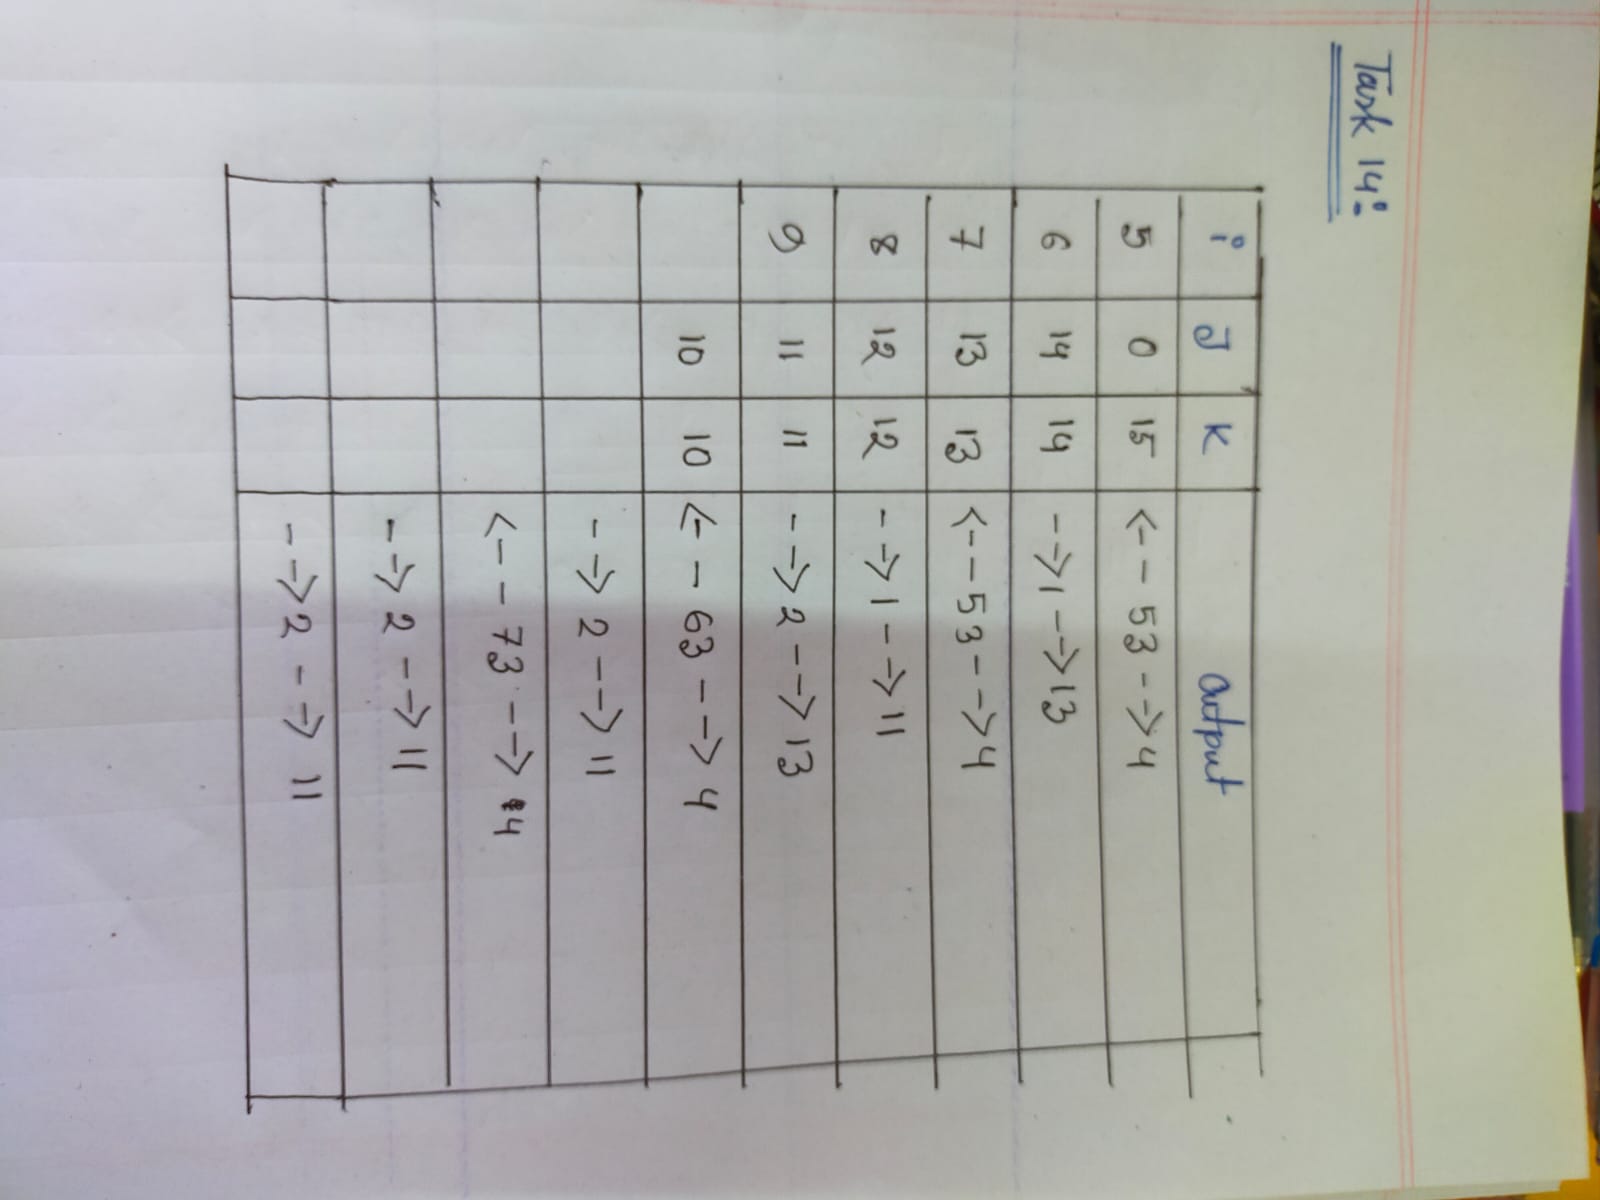 Task 14:
i J K Output
5 0 15 <-- 53 -->4
6 14 14 -->1 -->13
7 13 13 <--53-->4
8 12 12 -->1-->11
9 11 11 -->2-->13
10 10 <-- 63 --> 4
--> 2 --> 11
<-- 73 --> 4
--> 2 --> 11
-->2 --> 11